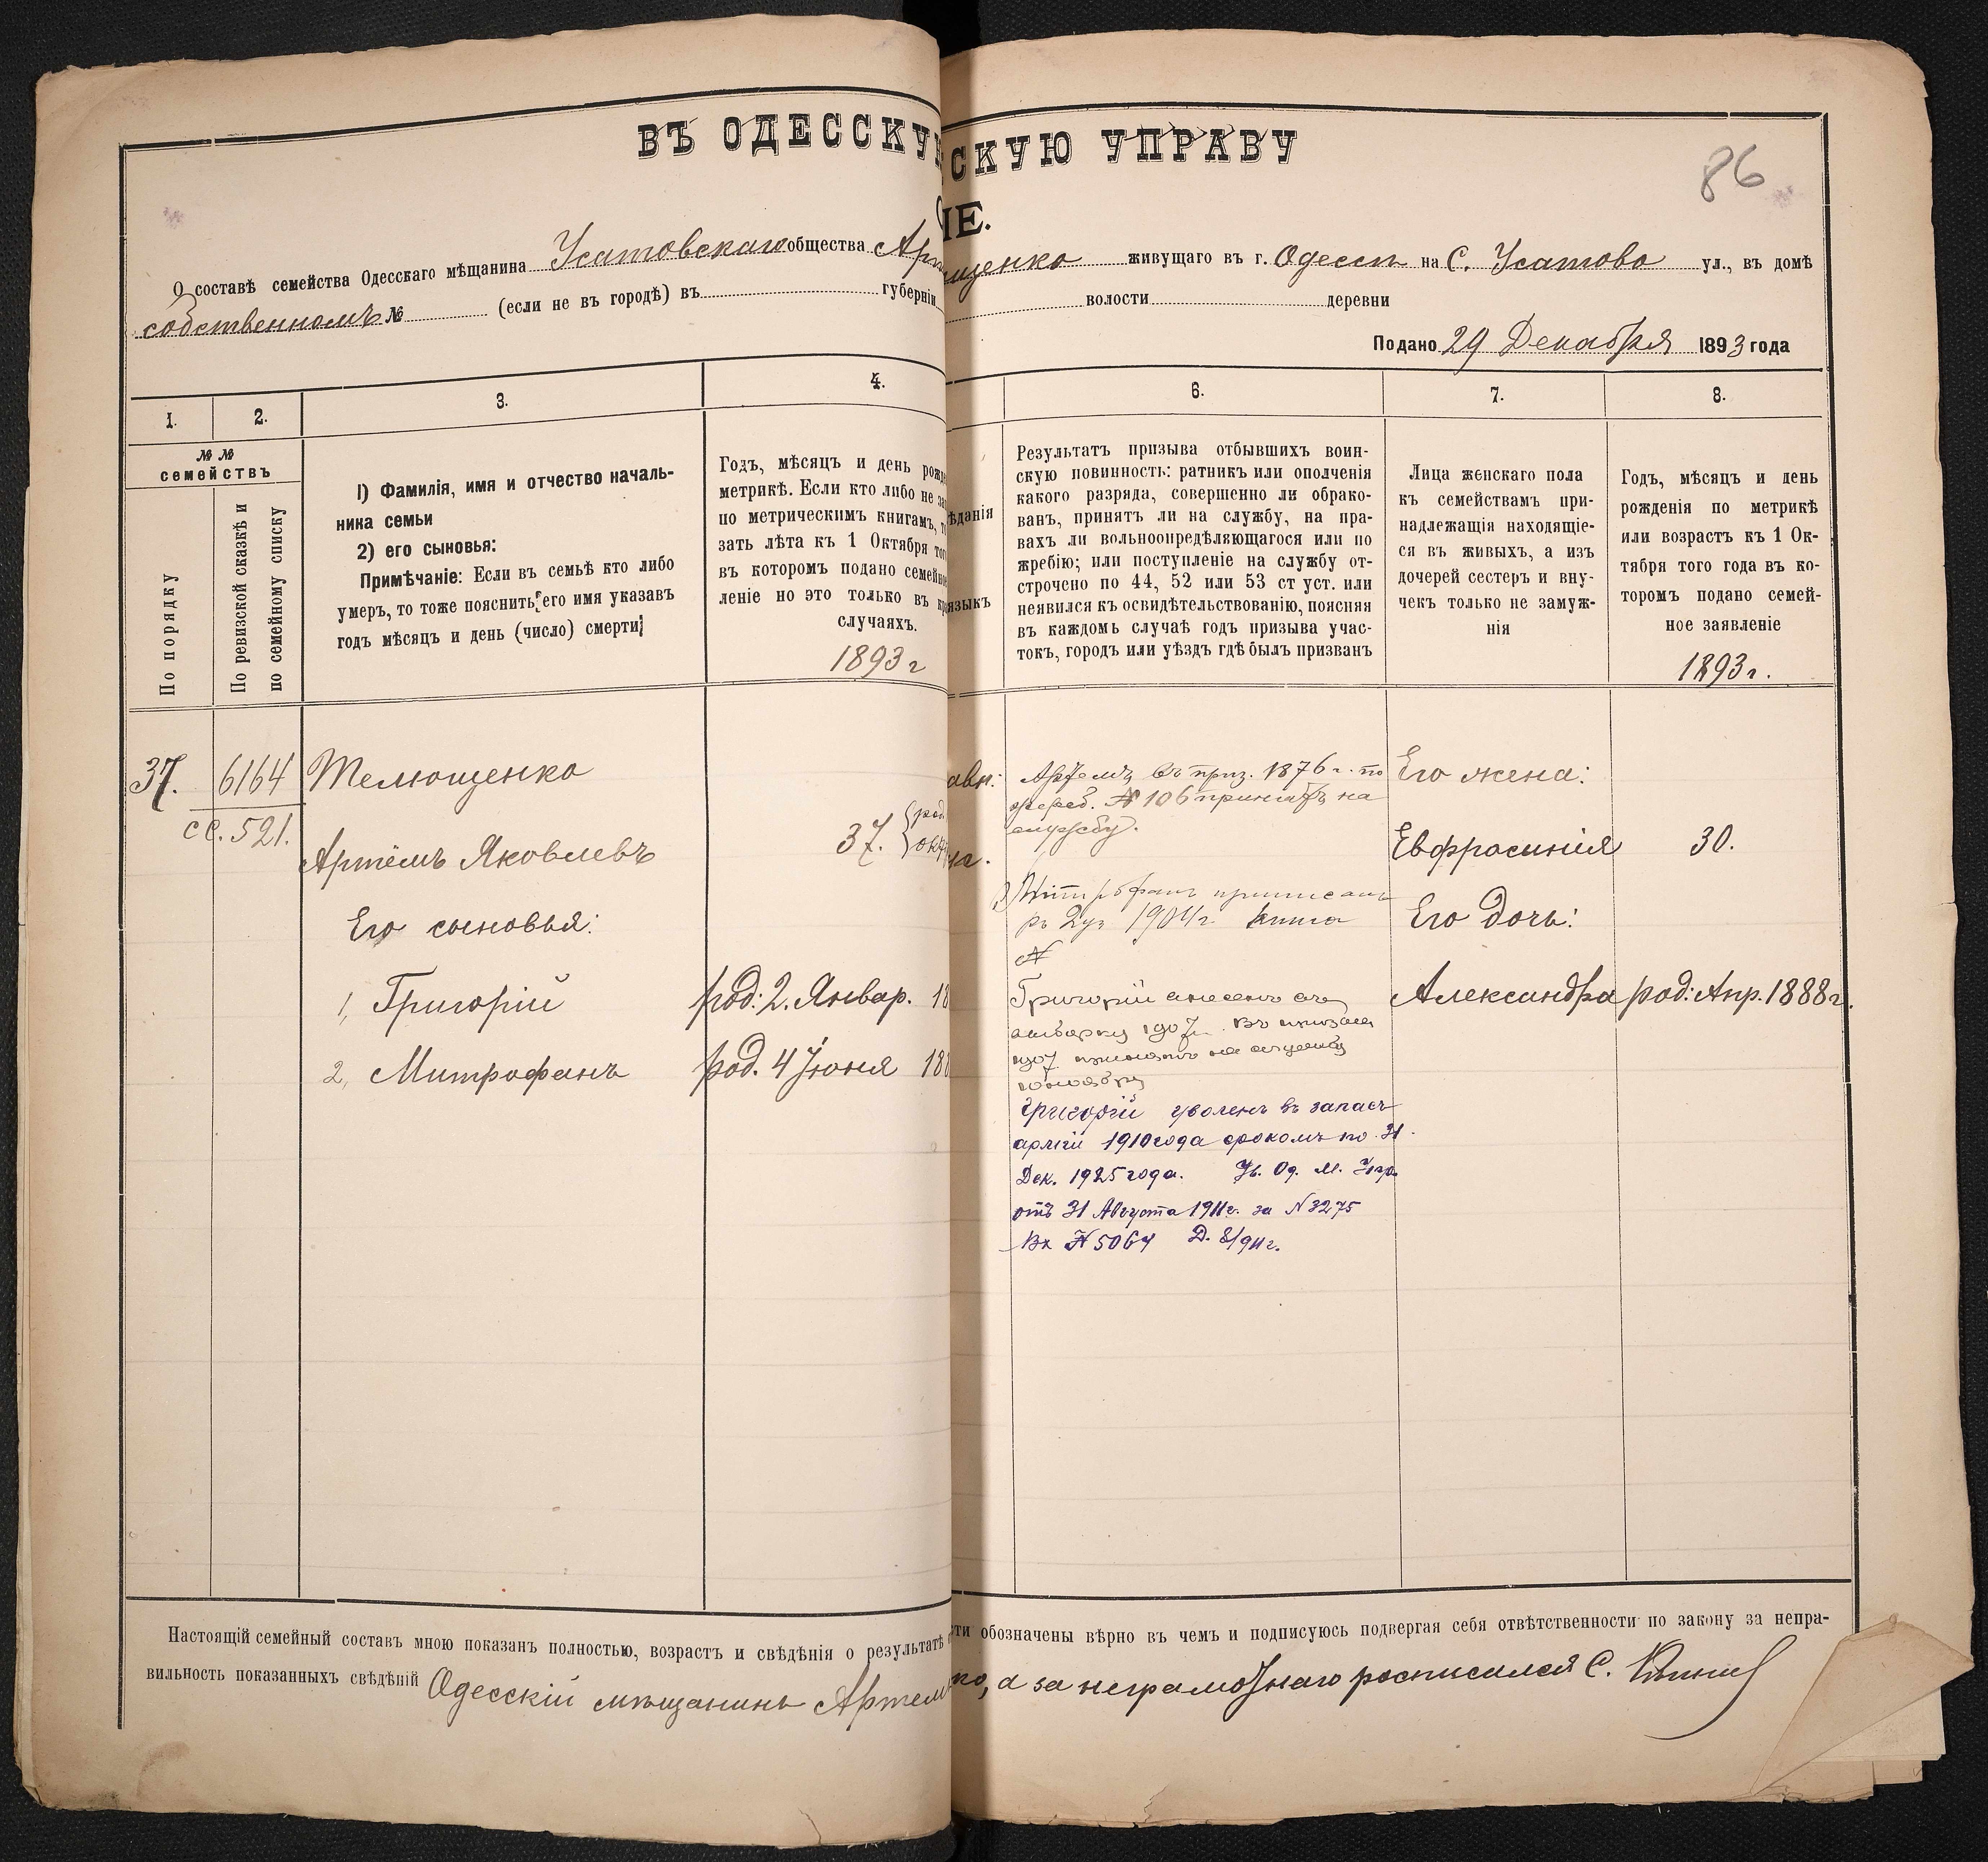 ВЪ ОДЕССКУ
СКУЮ УПРАВУ
86
ІЕ.
О составѣ семейства Одесскаго мѣщанина Усатовскаго общества Арт
ященко живущаго въ г. Одессѣ на С. Усатово ул., въ домѣ
собственномъ № (если не въ городѣ) въ губерніи
волости деревни
Подано 29 Декабря 1893 года
1.
2.
3.
4.
6.
7.
8.
№ №
семействъ
По порядку
По ревизской сказкѣ и
по семейному списку
1) Фамилія, имя и отчество началь-
ника семьи
2) его сыновья:
Примѣчаніе: Если въ семьѣ кто либо
умеръ, то тоже пояснить его имя указавъ
годъ мѣсяцъ и день (число) смерти;
Годъ, мѣсяцъ и день рожд
метрикѣ. Если кто либо не за
по метрическимъ книгамъ, т
зать лѣта къ 1 Октября тог
въ которомъ подано семейно
леніе но это только въ кр
случаяхъ.
1893 г
ѣданія
языкъ
Результатъ призыва отбывшихъ воин-
скую повинность: ратникъ или ополченія
какого разряда, совершенно ли обрако-
ванъ, принятъ ли на службу, на пра-
вахъ ли вольноопредѣляющагося или по
жребію; или поступленіе на службу от-
строчено по 44, 52 или 53 ст уст. или
неявился къ освидѣтельствованію, поясняя
въ каждомъ случаѣ годъ призыва учас-
токъ, городъ или уѣздъ гдѣ былъ призванъ
Лица женскаго пола
къ семействамъ при-
надлежащія находящіе-
ся въ живыхъ, а изъ
дочерей сестеръ и вну-
чекъ только не замуж-
нія
Годъ, мѣсяцъ и день
рожденія по метрикѣ
или возрастъ къ 1 Ок-
тября того года въ ко-
торомъ подано семей-
ное заявленіе
1893 г.
37.
6164
сс. 521.
Телющенко
Артёмъ Яковлевъ
37. {род.
окт
Его сыновья:
1, Григорій
род: 2. Январ. 18
2, Митрофанъ
род. 4 Іюня 188
авн:
Артемъ въ приз. 1876 г. по
жереб. № 106 принятъ на
службу.
Митрофанъ приписанъ
1904 г. книга
№
Григорій внесенъ въ
1907 г. Въ призывъ
1907 принятъ на службу
Григорій уволенъ въ запасъ
арміи 1910 года срокомъ по 31
Дек. 1925 года. Ув. Од. М. Упр.
отъ 31 Августа 1911 г. за № 3275
Вх № 5064 Д. 8/911 г.
Его жена:
Евфросинія
30.
Его дочь:
Александра
род: Апр. 1888 г.
Настоящій семейный составъ мною показанъ полностью, возрастъ и свѣдѣнія о результатѣ
сти обозначены вѣрно въ чемъ и подписуюсь подвергая себя отвѣтственности по закону за непра-
вильность показанныхъ свѣдѣній Одесскій мѣщанинъ Артем
ко, а за неграмотнаго росписался С.